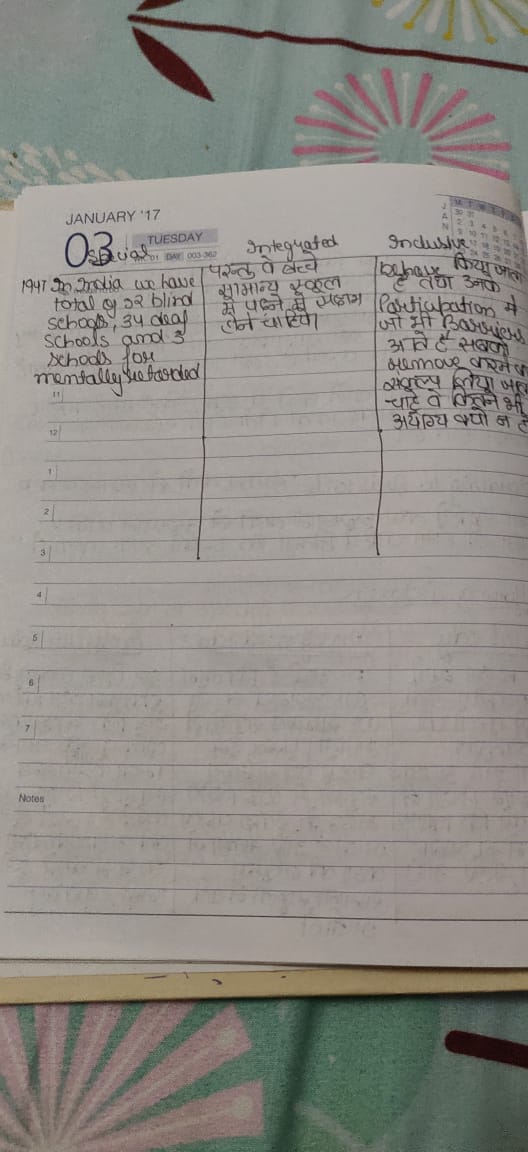 JANUARY '17
03 TUESDAY
DAY 003-362
Special
Integrated
Inclusive
1947 In India we have
total of 22 blind
schools, 34 deaf
schools and 3
schools for
mentally retarded
परन्तु वे बच्चे
सामान्य स्कूल
में पढने में सक्षम
होने चाहिये।
behave किया जाता
है तथा उनके
Participation में
जो भी Barriers
आते हैं सबको
remove करने का
संकल्प लिया जाता
चाहे वे कितने भी
अयोग्य क्यो न हो
11
12
1
2
3
4
5
6
7
Notes